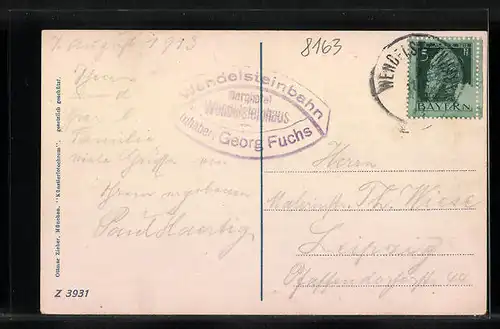 7. August 1913
8163
Ihnen
u.
Familie
viele Grüße von
Ihrem ergebenen
Paul Haertig
Wendelsteinbahn
Wendelsteinhaus
Inhaber: Georg Fuchs
WENDELS
5
BAYERN
Herrn
Malermstr. Th. Wiese
Leipzig
Pfaffendorferstr. 44
Ottmar Zieher, München. "Künstlerlichtdruck". gesetzlich geschützt.
Z 3931